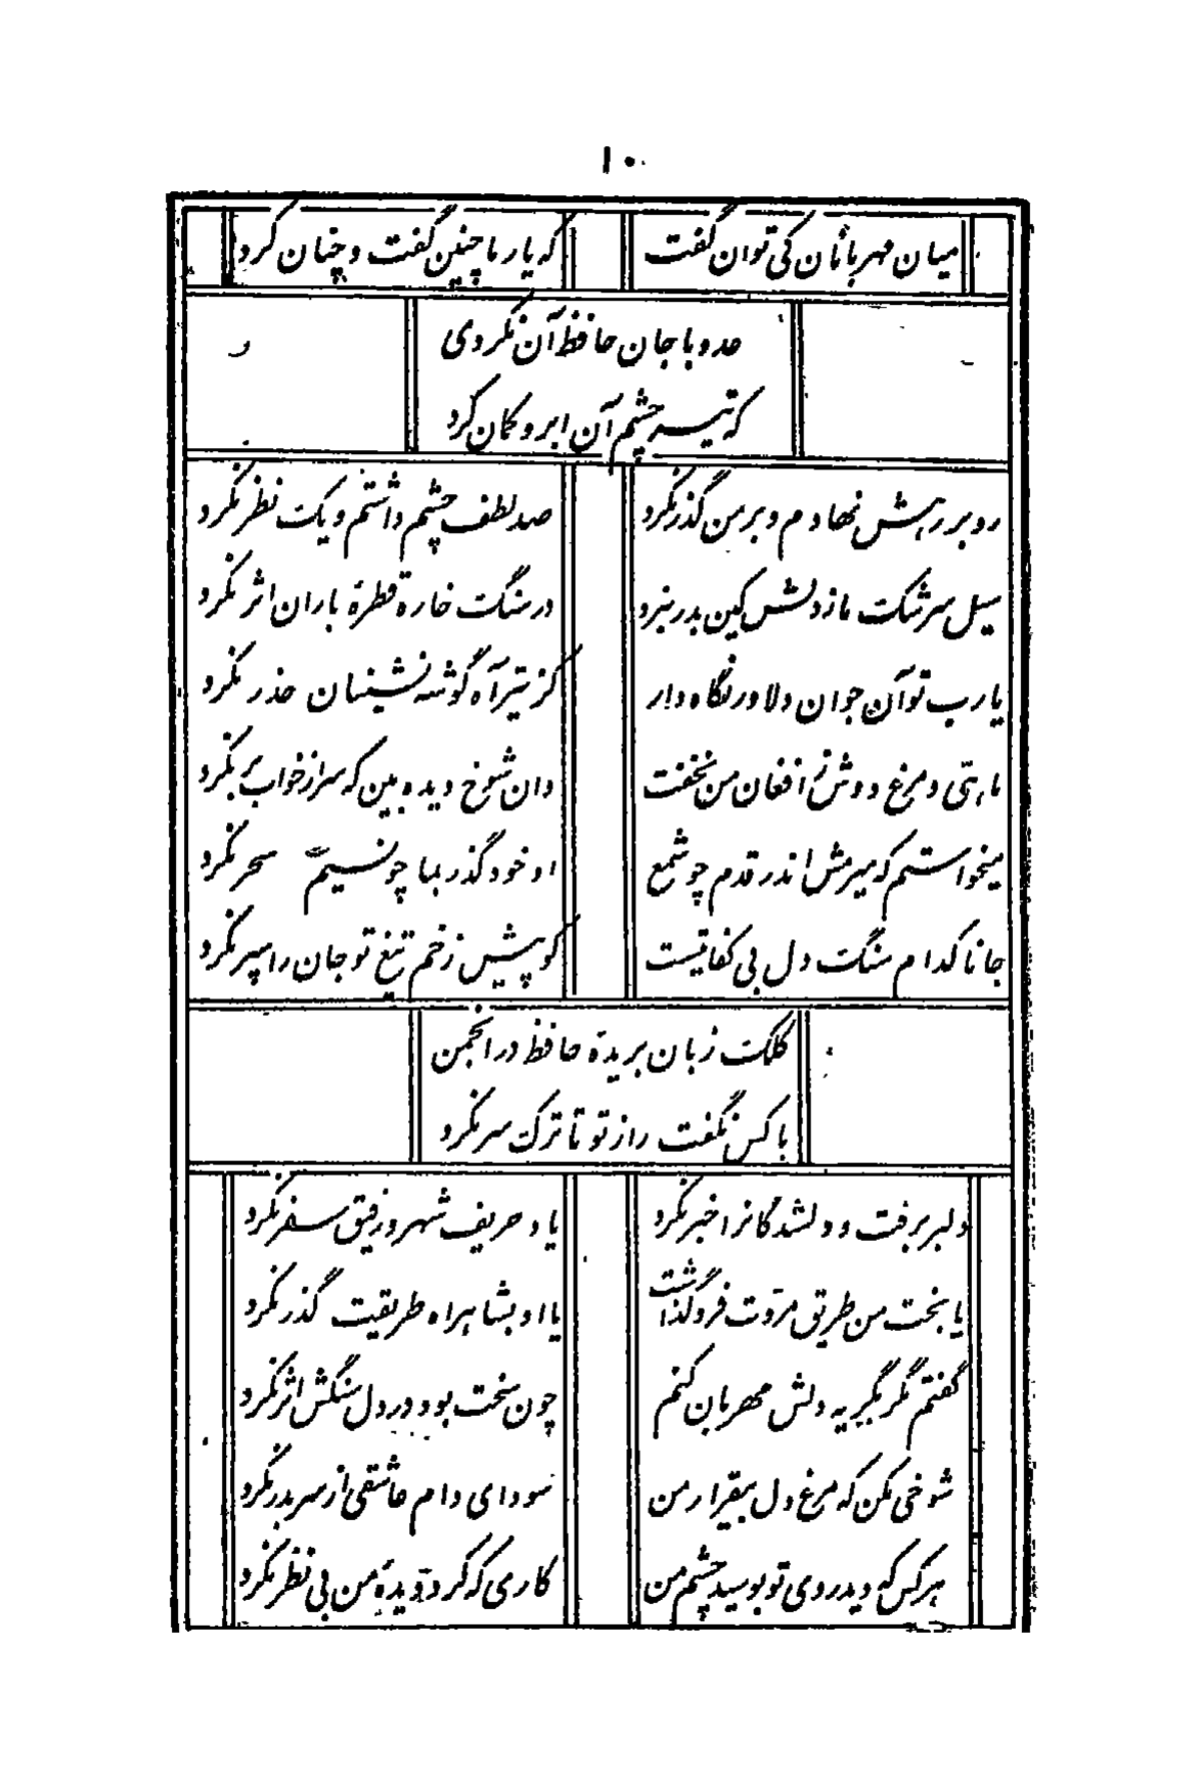 ۱۰
میان مهربانان کی توان گفت
که یار ما چنین گفت و چنان کرد
عدو با جان حافظ آن نکردی
که تیر چشم آن ابرو کمان کرد
رو بر رهش نهادم و بر من گذر نکرد
صد لطف چشم داشتم و یک نظر نکرد
سیل سرشک ما ز دلش کین بدر نبرد
در سنگ خاره قطرهٔ باران اثر نکرد
یا رب تو آن جوان دلاور نگاه دار
کز تیر آه گوشه نشینان حذر نکرد
ماهی و مرغ دوش ز افغان من نخفت
وان شوخ دیده بین که سر از خواب بر نکرد
میخواستم که میرمش اندر قدم چو شمع
او خود گذر بما چو نسیم سحر نکرد
جانا کدام سنگ دل بی کفایتست
کو پیش زخم تیغ تو جان را سپر نکرد
کلک زبان بریدهٔ حافظ در انجمن
با کس نگفت راز تو تا ترک سر نکرد
دلبر برفت و دلشدگانرا خبر نکرد
یاد حریف شهر و رفیق سفر نکرد
یا بخت من طریق مروّت فرو گذاشت
یا او بشاهراه طریقت گذر نکرد
گفتم مگر بگریه دلش مهربان کنم
چون سخت بود در دل سنگش اثر نکرد
شوخی مکن که مرغ دل بیقرار من
سودای دام عاشقی از سر بدر نکرد
هر کس که دید روی تو بوسید چشم من
کاری که کرد دیدهٔ من بی نظر نکرد